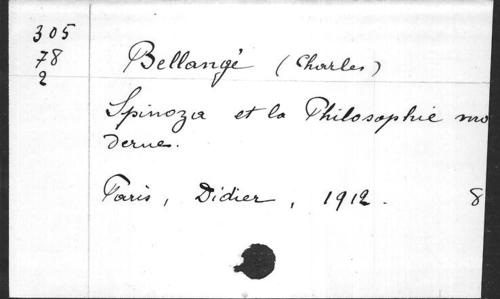 305
78
2
Bellangé (Charles)
Spinoza et la Philosophie mo
derne.
Paris, Didier, 1912. 8